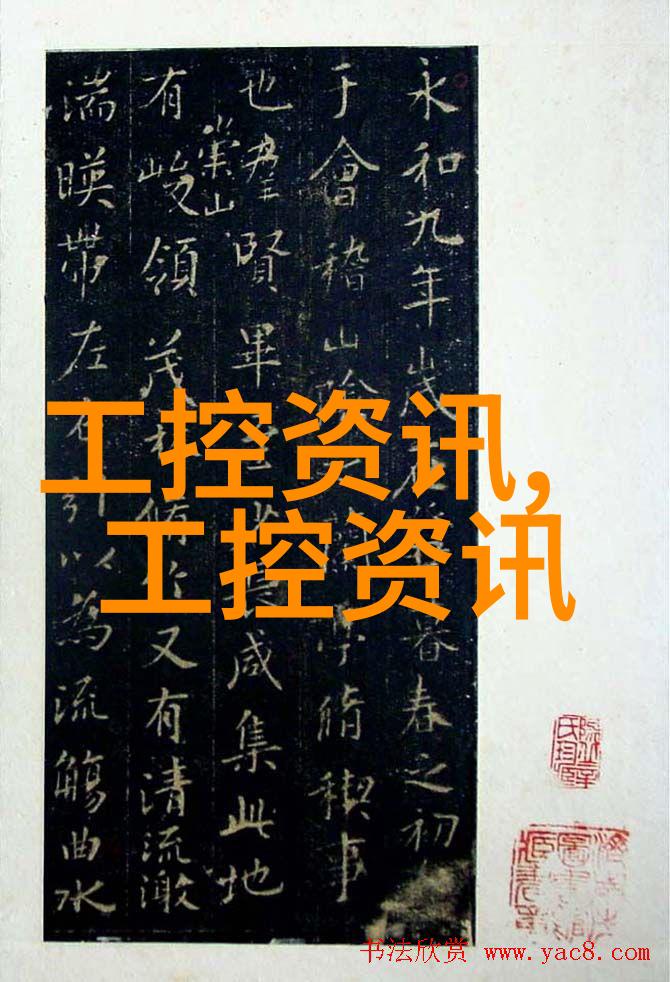 永和九年歲在暮春之初
于會稽山陰蘭亭脩稧事
也羣賢畢至少長咸集此地
有崇山峻領茂林脩竹又有清流激
湍暎帶左右引以為流觴曲水
工控资讯,
工控资讯
书法欣赏 www.yac8.com